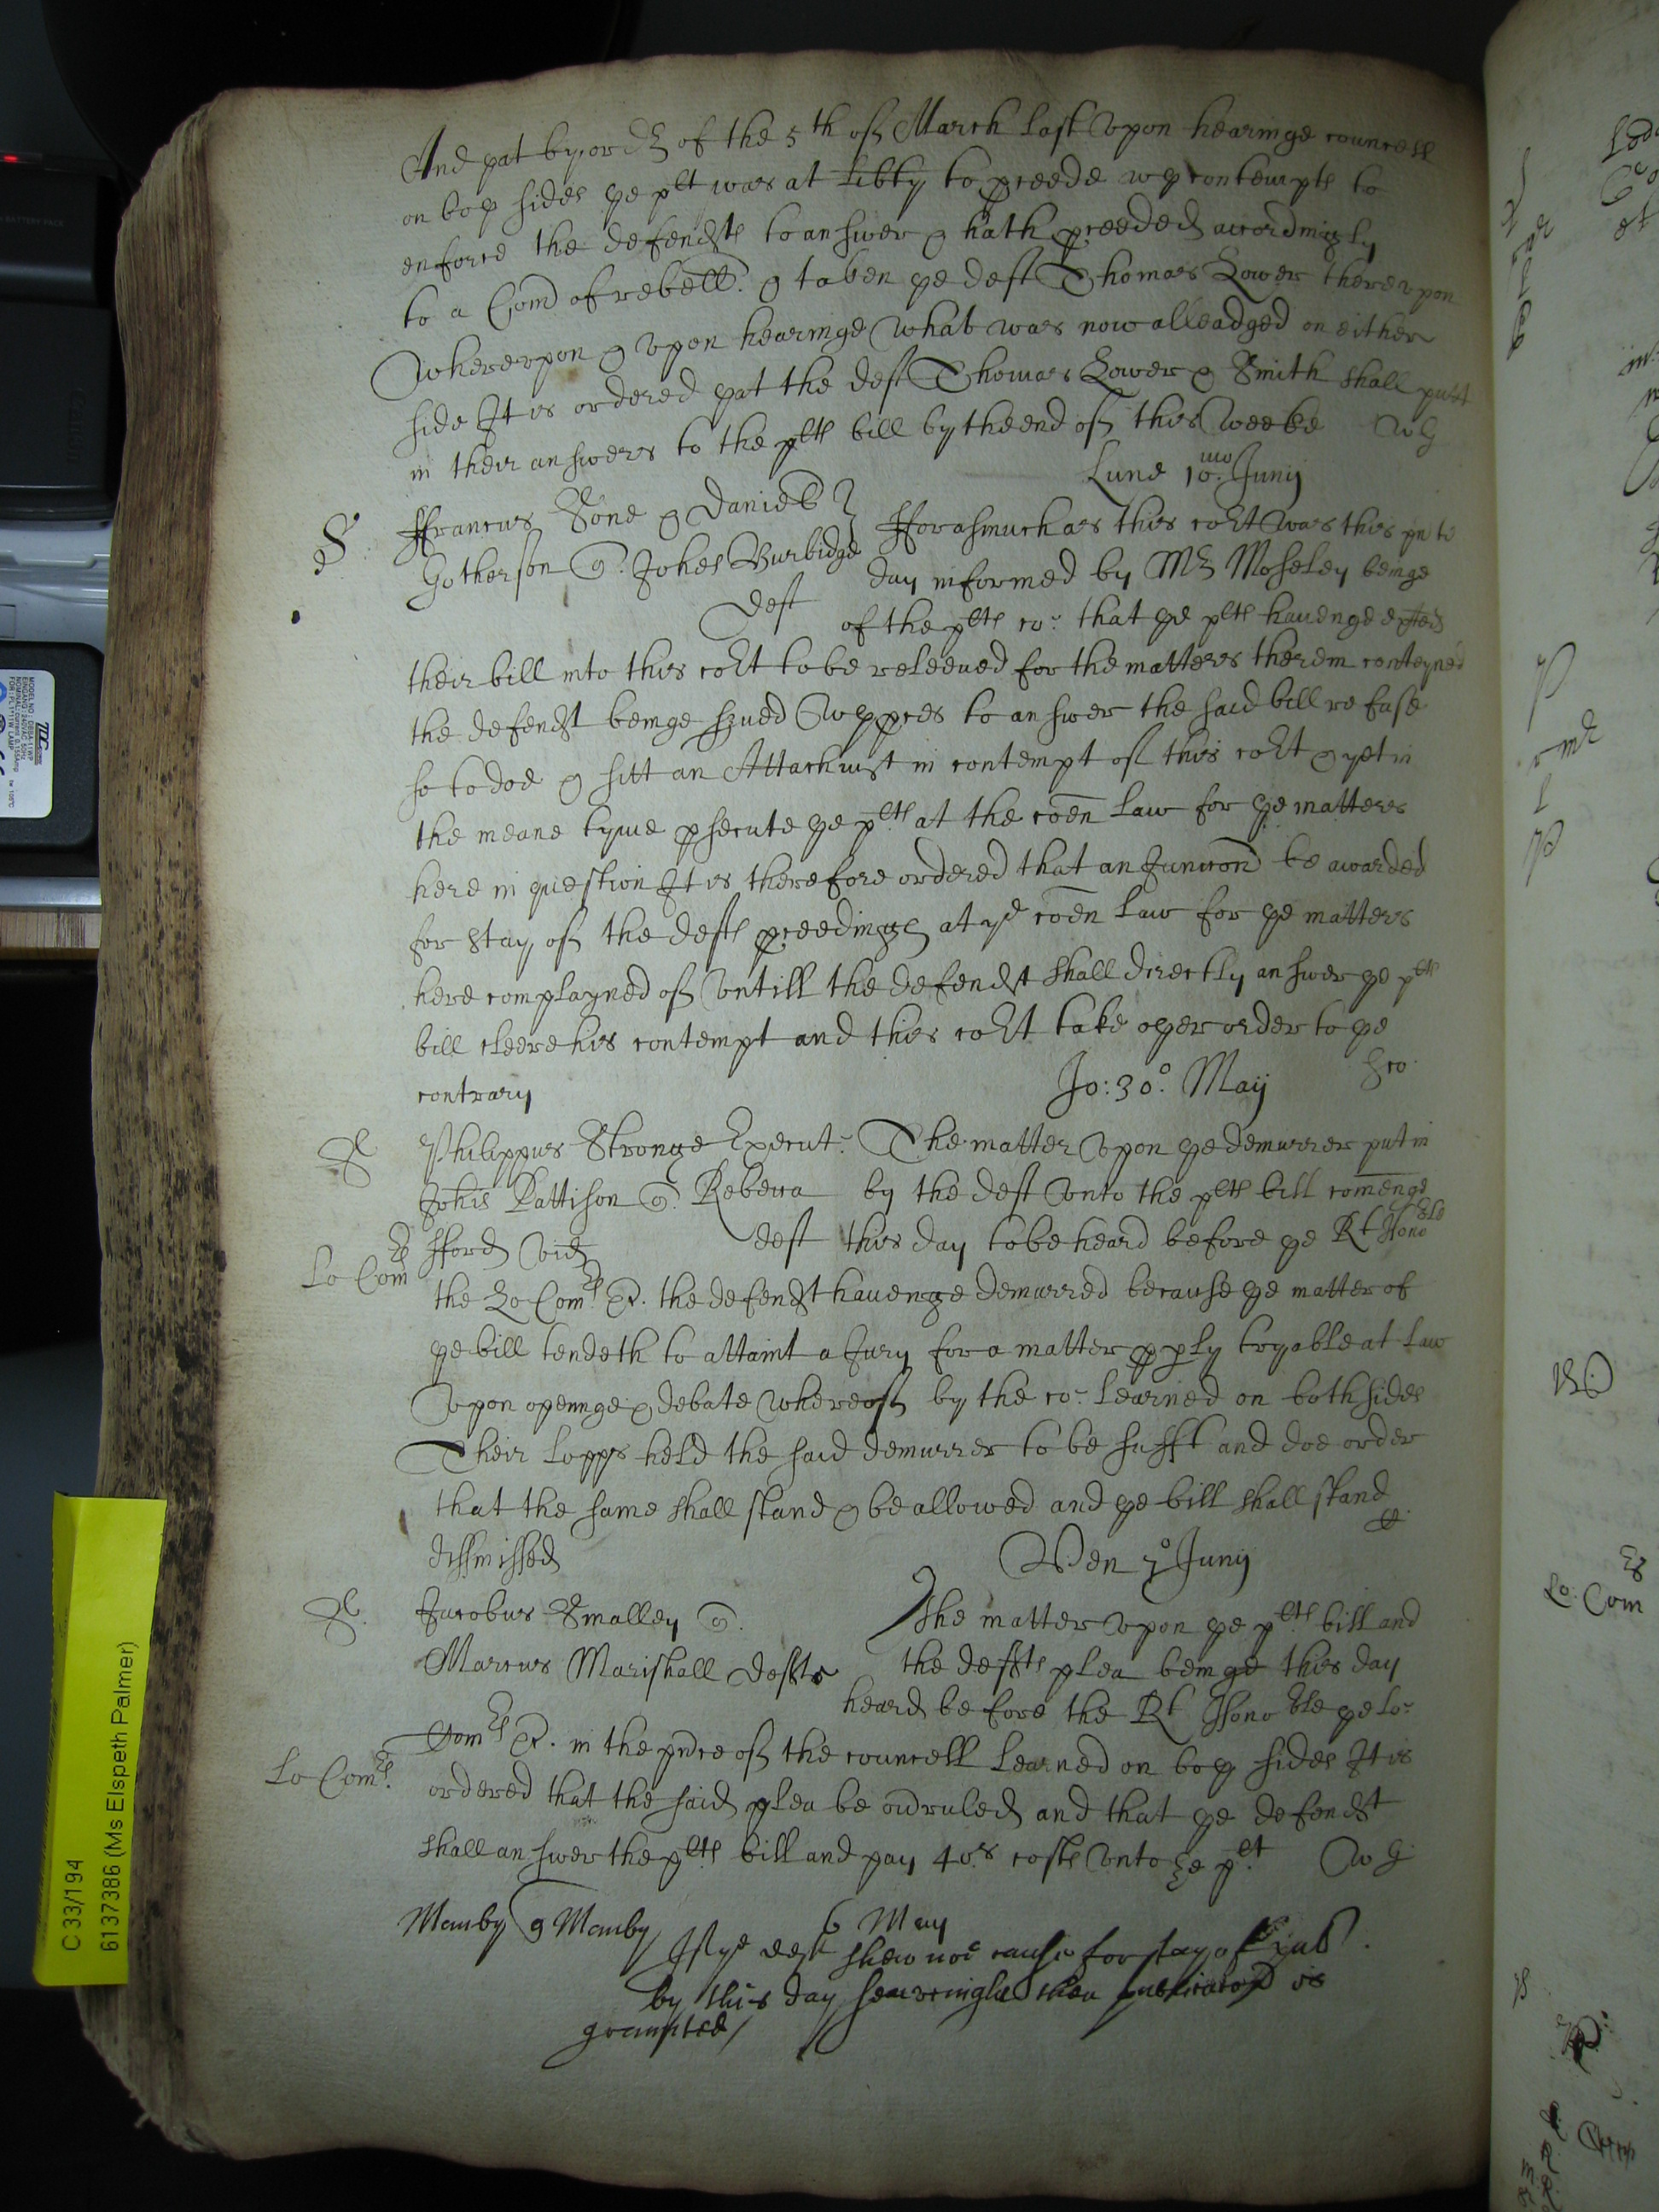 And yat by ordr of the 5th of March last vpon hearinge councell
on boy sides ye plt was at libty to pceede wy contempts to
enforce the defendts to answer & hath pceeded accordingly
to a Com of rebell. & taken ye deft Thomas Lower therevpon
Wherevpon & vpon hearinge what was now alleadged on either
side It is ordered yat the deft Thomas Lower & Smith shall putt
in their answers to the plts bill by the end of this weeke WG
Lune 10mo. Junij
S
ffrancus Sone & Daniel
Gotherson Johes Burbidge
Deft
fforasmuch as this cort was this pnte
day informed by Mr Moseley beinge
of the plts co: that ye plts havenge
their bill into this cort to be releeued for the matters therein conteyned
the defendt beinge srued wy pces to answer the said bill refuse
so to doe & sitt an Attachmt in contempt of this cort & yet in
the meane tyme psecute ye plts at the coen law for ye matters
here in question It is therefore ordered that an Junccon be awarded
for stay of the defts pceedings at ye coen law for ye matters
here complayned of vntill the defendt shall directly answer ye plts
bill cleere his contempt and this cort take oyer order to ye
contrary
Jo: 30o. Maij
S
Philippus Stronge Execut: 
Johis Pattison Rebecca
fford vid deft
Lo Com
The matter vpon ye demurrer put in
by the deft vnto the plts bill comenge
this day to be heard before ye Rt Honoble
the Lo Comrs &. the defendt havenge demurred because ye matter of
ye bill tendeth to attaint a Jury for a matter pply tryable at law
Vpon openinge & debate whereof by the co: learned on both sides
Their Lopps held the said demurrer to be sufft and doe order
that the same shall stand & be allowed and ye bill shall stand
dissmissed
Wen Junij
S
Jacobus Smalley
Marcus Marishall Defts
The matter vpon ye plts bill and
the deffts plea beinge this day
heard before the Rt Honoble ye Lo:
Comrs &. in the pnce of the councell learned on boy sides It is
Lo Comrs.
ordered that the said plea be ovruled and that ye defendt
shall answer the plts bill and pay 40s costs vnto ye plt WG
Manby Manby 6 May
If ye deft shew noe cause for stay of
by this day seavenight then publicacon is
graunted
C 33/194
6137386 (Ms Elspeth Palmer)
Lo: Com